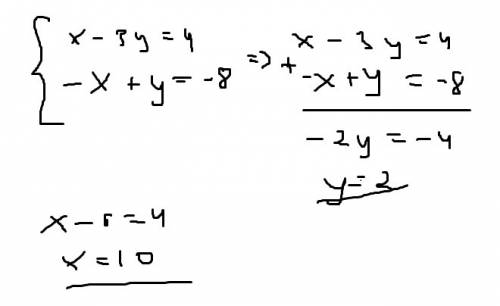 x - 3y = 4
-x + y = -8
=> + x - 3y = 4
-x + y = -8
-2y = -4
y = 2
x - 6 = 4
x = 10